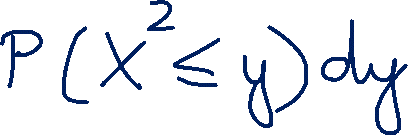 P(X² ≤ y)dy